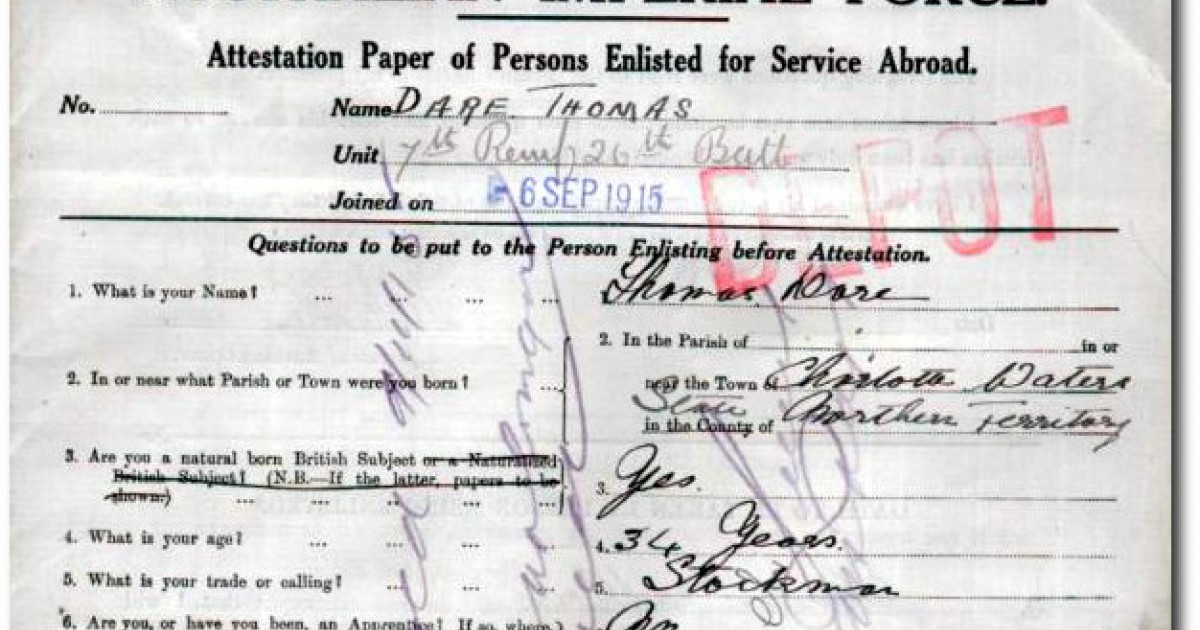 AUSTRALIAN IMPERIAL FORCE.
Attestation Paper of Persons Enlisted for Service Abroad.
No. Name DARE THOMAS
Unit 7th Reinf 26th Batt
Joined on 6 SEP 1915
DEPOT
Questions to be put to the Person Enlisting before Attestation.
1. What is your Name? ... ... ... ... Thomas Dare
2. In the Parish of in or
2. In or near what Parish or Town were you born? ... near the Town of Charlotte Waters
State
in the County of Northern Territory
3. Are you a natural born British Subject or a Naturalised
British Subject? (N.B.—If the latter, papers to be
shown.) ... ... ... ... 3. Yes.
4. What is your age? ... ... ... ... 4. 34 Years.
5. What is your trade or calling? ... ... ... 5. Stockman
6. Are you, or have you been, an Apprentice? If so, where? No